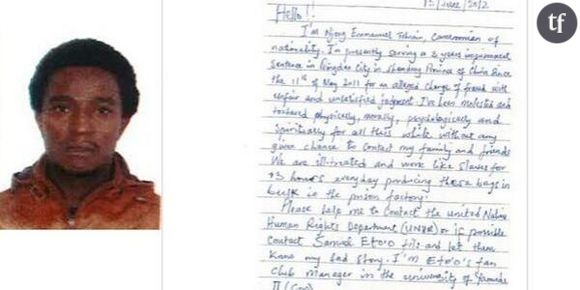 tf
June/2012
Hello!!
I'm Njong Emmanuel Tohnain, Cameroonian of
nationality. I'm presently serving a 3 years imprisonment
sentence in Qingdao City in Shandong Province of China since
the 11th of May 2011 for an alleged charge of fraud with
unfair and unsatisfied judgment. I've been molested and
tortured physically, morally, psychologically and
spiritually for all this while without any
given chance to contact my family and friends
We are ill-treated and work like slaves for
13 hours everyday producing these bags in
bulk in the prison factory.
Please help me to Contact the united Nations
Human Rights Department (UNHR) or if possible
contact Samuel Eto'o fils and let them
know my sad story. I'm Eto'o's fan
club manager in the university of Yaounde
II